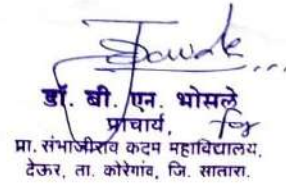 डॉ. बी. एन. भोसले
प्राचार्य,
प्रा. संभाजीराव कदम महाविद्यालय,
देऊर, ता. कोरेगांव, जि. सातारा.